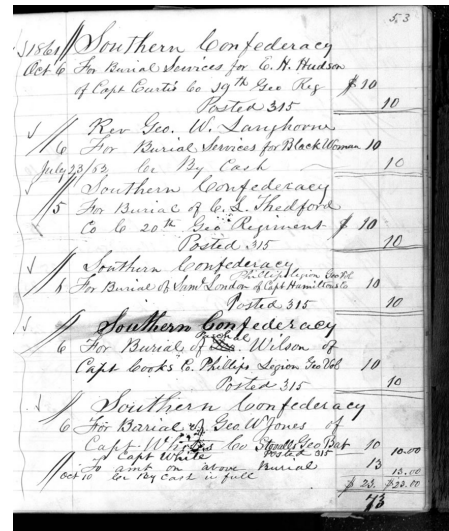 53
1861 Southern Confederacy
Oct 6 For Burial Services for E. H. Hudson
of Capt Curtis Co 19th Geo Reg $10
Posted 315 10
Rev Geo. W. Langhorne
6 For Burial Services for Black Woman 10
July 23/52 Cr By Cash 10
Southern Confederacy
5 For Burial of C. L. Thedford
Co C 20th Geo Regiment $10
Posted 315 10
Southern Confederacy
Phillips Legion Geo Vol
6 For Burial of Saml London of Capt Hamiltons Co 10
Posted 315 10
Southern Confederacy
6 For Burial of Wilson of
Capt Cooks Co. Phillips Legion Geo Vol 10
Posted 315 10
Southern Confederacy
6 For Burial of Geo W Jones of
Capt Co Stovalls Geo Bat 10 10.00
Capt White Posted 315
To amt on above Burial 13 13.00
Oct 10 Cr By Cash in full $23. $23.00
73